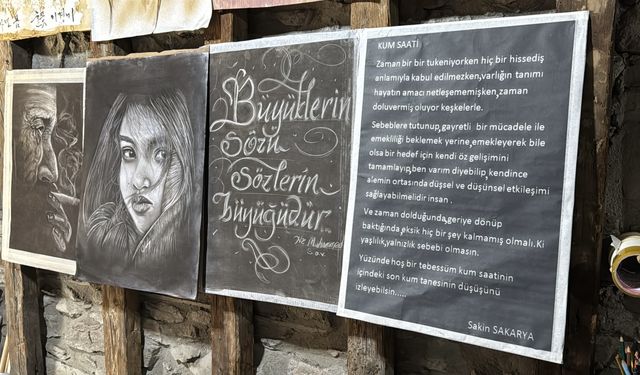 Büyüklerin
Sözü
Sözlerin
büyüğüdür
Hz. Muhammed
s.a.v.
KUM SAATİ
Zaman bir bir tukeniyorken hiç bir hissediş
anlamıyla kabul edilmezken,varlığın tanımı
hayatın amacı netleşememişken,zaman
doluvermiş oluyor keşkelerle.
Sebeblere tutunup,gayretli bir mücadele ile
emekliliği beklemek yerine,emekleyerek bile
olsa bir hedef için kendi öz gelişimini
tamamlayıp,ben varım diyebilip,kendince
alemin ortasında düşsel ve düşünsel etkileşimi
sağlayabilmelidir insan .
Ve zaman dolduğunda,geriye dönüp
baktığında,eksik hiç bir şey kalmamış olmalı.Ki
yaşlılık,yalnızlık sebebi olmasın.
Yüzünde hoş bir tebessüm kum saatinin
içindeki son kum tanesinin düşüşünü
izleyebilsin.....
Sakin SAKARYA